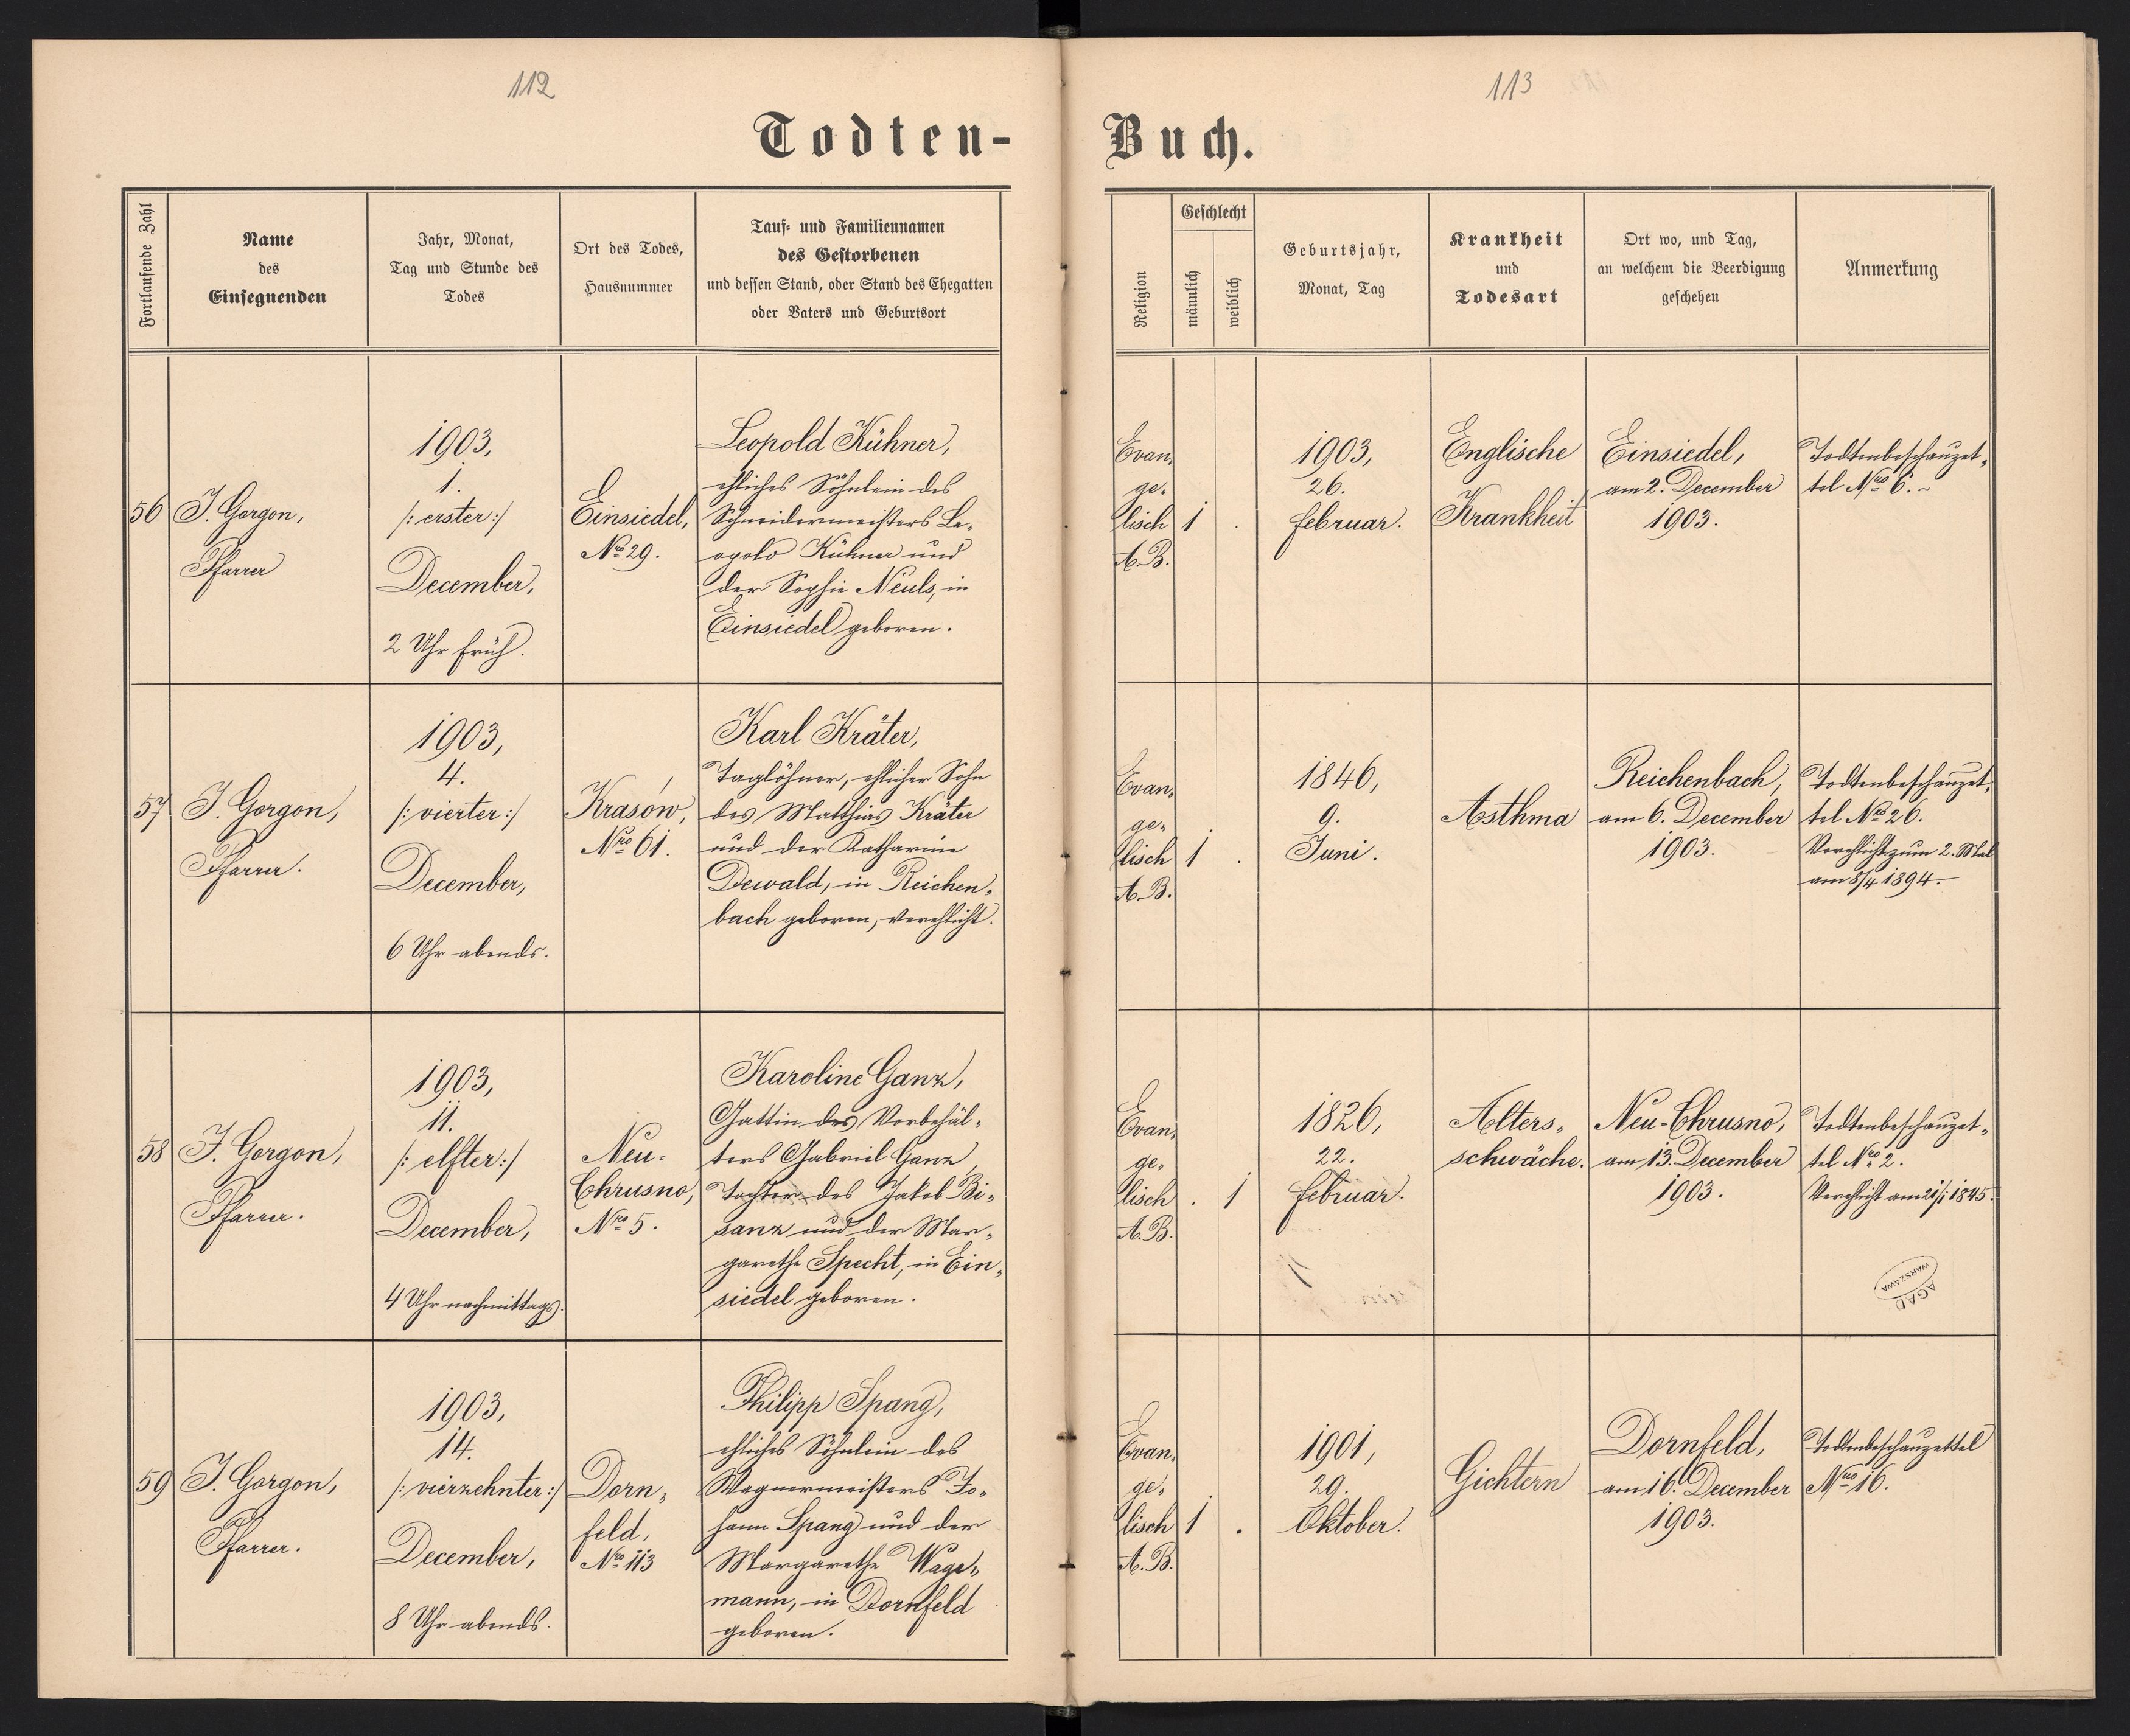 112
Todten-
113
Buch.
Fortlaufende Zahl
Name
des
Einsegnenden
Jahr, Monat,
Tag und Stunde des
Todes
Ort des Todes,
Hausnummer
Tauf- und Familiennamen
des Gestorbenen
und dessen Stand, oder Stand des Ehegatten
oder Vaters und Geburtsort
Religion
Geschlecht
männlich
weiblich
Geburtsjahr,
Monat, Tag
Krankheit
und
Todesart
Ort wo, und Tag,
an welchem die Beerdigung
geschehen
Anmerkung
56
J. Gorgon,
Pfarrer
1903,
1.
/: erster :/
December,
2 Uhr früh.
Einsiedel,
Nro 29.
Leopold Kühner,
ehliches Söhnlein des
Schneidermeisters Le-
opold Kühner und
der Sophie Neuls, in
Einsiedel geboren.
Evan-
ge-
lisch
A. B.
1
.
1903,
26.
Februar.
Englische
Krankheit
Einsiedel,
am 2. December
1903.
Todtenbeschauzet-
tel Nro 6. ~
57
J. Gorgon,
Pfarrer.
1903,
4.
/: vierter :/
December,
6 Uhr abends.
Krasów,
Nro 61.
Karl Kräter,
Taglöhner, ehlicher Sohn
des Matthias Kräter
und der Katharine
Dewald, in Reichen-
bach geboren, verehlicht.
Evan-
ge-
lisch
A. B.
1
.
1846,
9.
Juni.
Asthma
Reichenbach,
am 6. December
1903.
Todtenbeschauzet-
tel Nro 26.
Verehlicht zum 2. Mal
am 8/4 1894.
58
J. Gorgon,
Pfarrer.
1903,
11.
/: elfter :/
December,
4 Uhr nachmittags.
Neu-
Chrusno,
Nro 5.
Karoline Ganz,
Gattin des Vorbehäl-
ters Gabriel Ganz,
Tochter des Jakob Bi-
sanz und der Mar-
garethe Specht, in Ein-
siedel geboren.
Evan-
ge-
lisch
A. B.
.
1
1826,
22.
Februar.
Alters-
schwäche.
Neu-Chrusno,
am 13. December
1903.
Todtenbeschauzet-
tel Nro 2.
Verehlicht am 21/1 1845.
AGAD
WARSZAWA
59
J. Gorgon,
Pfarrer.
1903,
14.
/: vierzehnter :/
December,
8 Uhr abends.
Dorn-
feld,
Nro 113
Philipp Spang,
ehliches Söhnlein des
Wagnermeisters Jo-
hann Spang und der
Margarethe Wage-
mann, in Dornfeld
geboren.
Evan-
ge-
lisch
A. B.
1
.
1901,
29.
Oktober.
Gichtern
Dornfeld,
am 16. December
1903.
Todtenbeschauzettel
Nro 16.